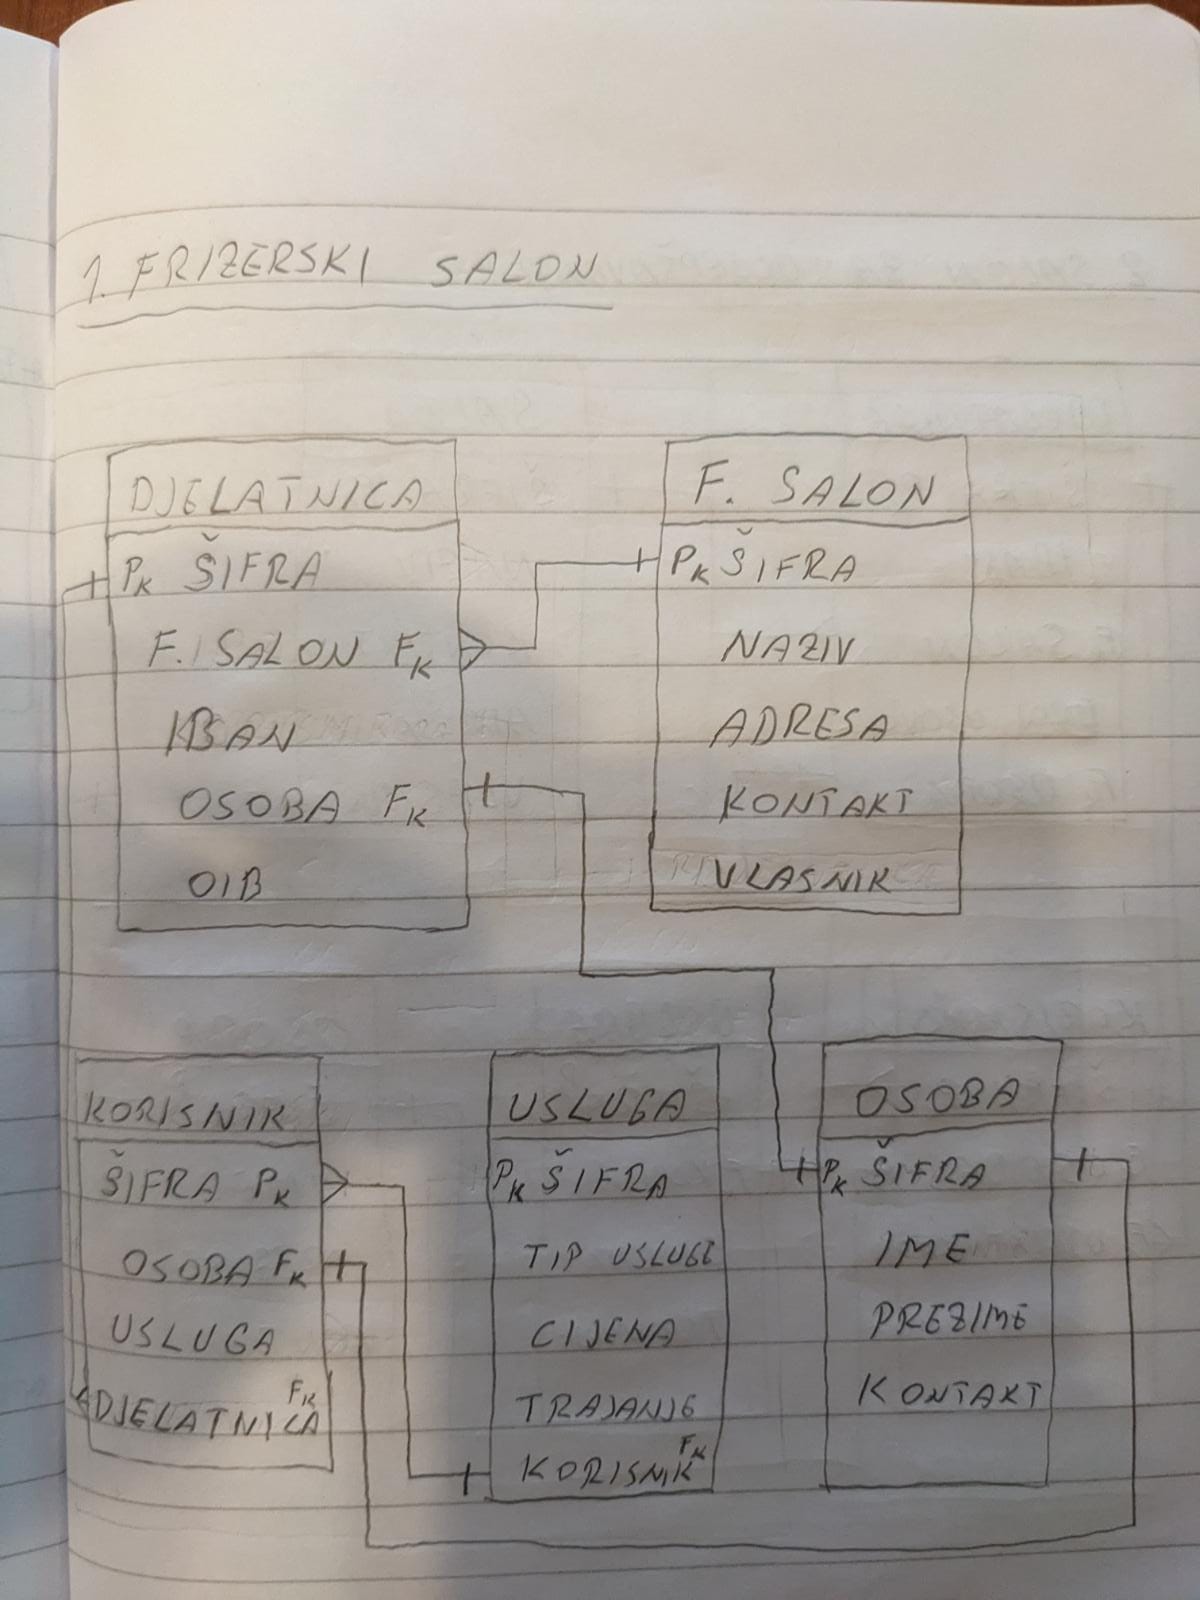 1. FRIZERSKI SALON
DJELATNICA
PK ŠIFRA
F. SALON FK
IBAN
OSOBA FK
OIB
F. SALON
PK ŠIFRA
NAZIV
ADRESA
KONTAKT
VLASNIK
KORISNIK
ŠIFRA PK
OSOBA FK
USLUGA
DJELATNICA FK
USLUGA
PK ŠIFRA
TIP USLUGE
CIJENA
TRAJANJE
KORISNIK FK
OSOBA
PK ŠIFRA
IME
PREZIME
KONTAKT